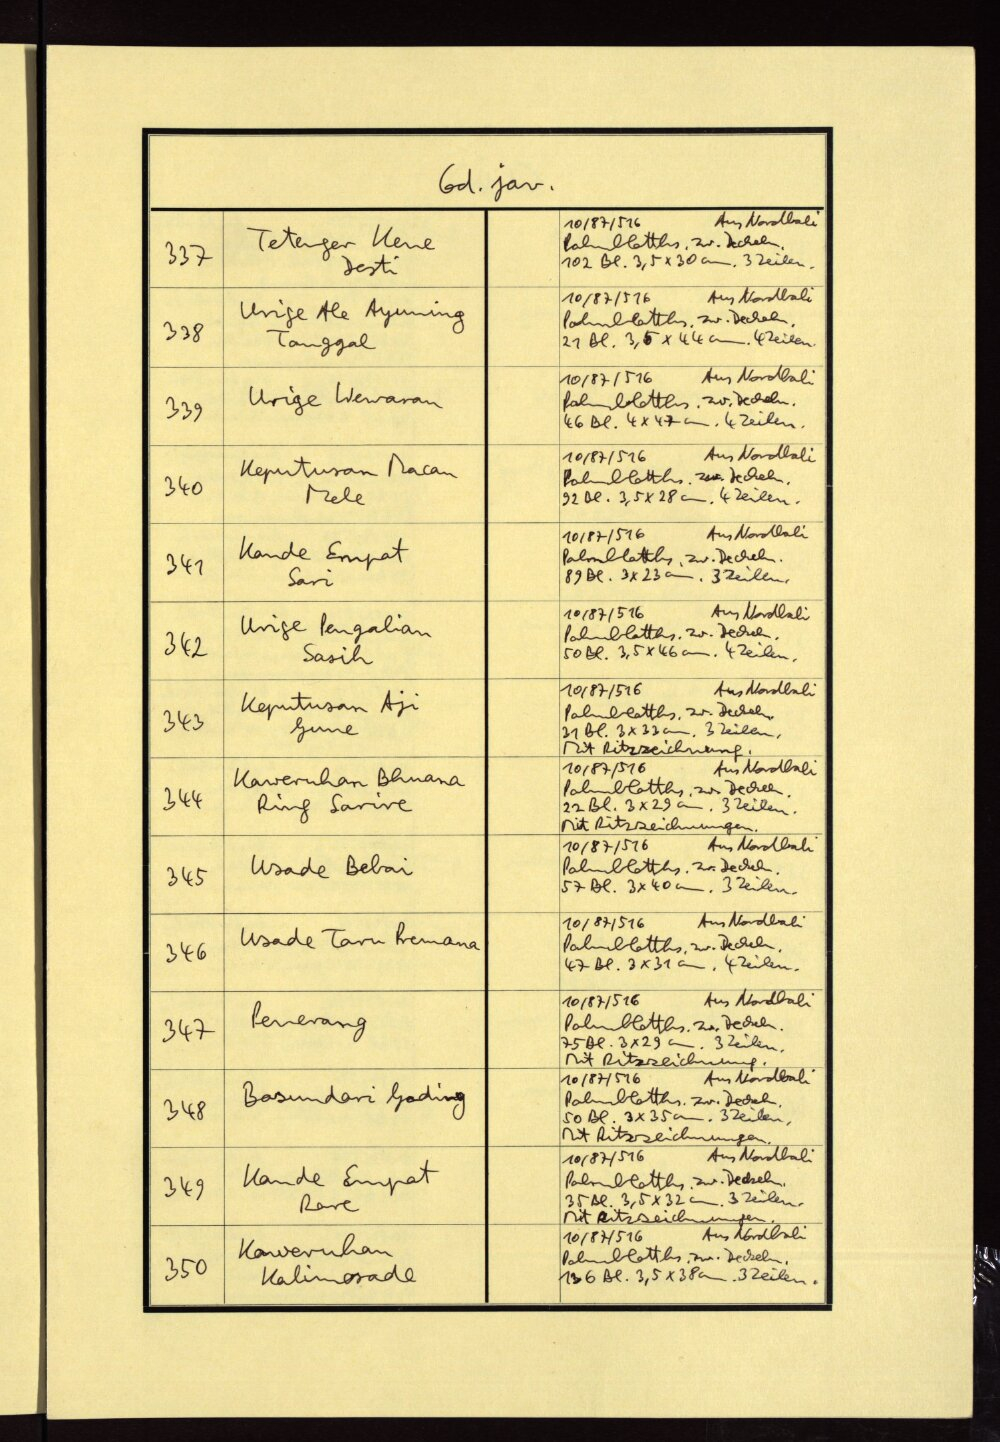 Cd. jav.
337
Tetenger Kene
Desti
10/87/516 Aus Nordbali
Palmblatths. zw. Deckeln.
102 Bl. 3,5 x 30 cm. 3 Zeilen.
338
Urige Ale Ayuning
Tanggal
10/87/516 Aus Nordbali
Palmblatths. zw. Deckeln.
21 Bl. 3,5 x 44 cm. 4 Zeilen.
339
Urige Wewaran
10/87/516 Aus Nordbali
Palmblatths. zw. Deckeln.
46 Bl. 4 x 47 cm. 4 Zeilen.
340
Keputusan Macan
Mele
10/87/516 Aus Nordbali
Palmblatths. zw. Deckeln.
92 Bl. 3,5 x 28 cm. 4 Zeilen.
341
Kande Empat
Sari
10/87/516 Aus Nordbali
Palmblatths. zw. Deckeln.
89 Bl. 3 x 23 cm. 3 Zeilen.
342
Urige Pengalian
Sasih
10/87/516 Aus Nordbali
Palmblatths. zw. Deckeln.
50 Bl. 3,5 x 46 cm. 4 Zeilen.
343
Keputusan Aji
Gune
10/87/516 Aus Nordbali
Palmblatths. zw. Deckeln.
31 Bl. 3 x 33 cm. 3 Zeilen.
Mit Ritzzeichnung.
344
Kaweruhan Bhuana
Ring Sarire
10/87/516 Aus Nordbali
Palmblatths. zw. Deckeln.
22 Bl. 3 x 29 cm. 3 Zeilen.
Mit Ritzzeichnungen.
345
Usade Bebai
10/87/516 Aus Nordbali
Palmblatths. zw. Deckeln.
57 Bl. 3 x 40 cm. 3 Zeilen.
346
Usade Taru Premana
10/87/516 Aus Nordbali
Palmblatths. zw. Deckeln.
47 Bl. 3 x 31 cm. 4 Zeilen.
347
Penerang
10/87/516 Aus Nordbali
Palmblatths. zw. Deckeln.
75 Bl. 3 x 29 cm. 3 Zeilen.
Mit Ritzzeichnung.
348
Basundari Gading
10/87/516 Aus Nordbali
Palmblatths. zw. Deckeln.
50 Bl. 3 x 35 cm. 3 Zeilen.
Mit Ritzzeichnungen.
349
Kande Empat
Rare
10/87/516 Aus Nordbali
Palmblatths. zw. Deckeln.
35 Bl. 3,5 x 32 cm. 3 Zeilen.
Mit Ritzzeichnungen.
350
Kaweruhan
Kalimosade
10/87/516 Aus Nordbali
Palmblatths. zw. Deckeln.
136 Bl. 3,5 x 38 cm. 3 Zeilen.